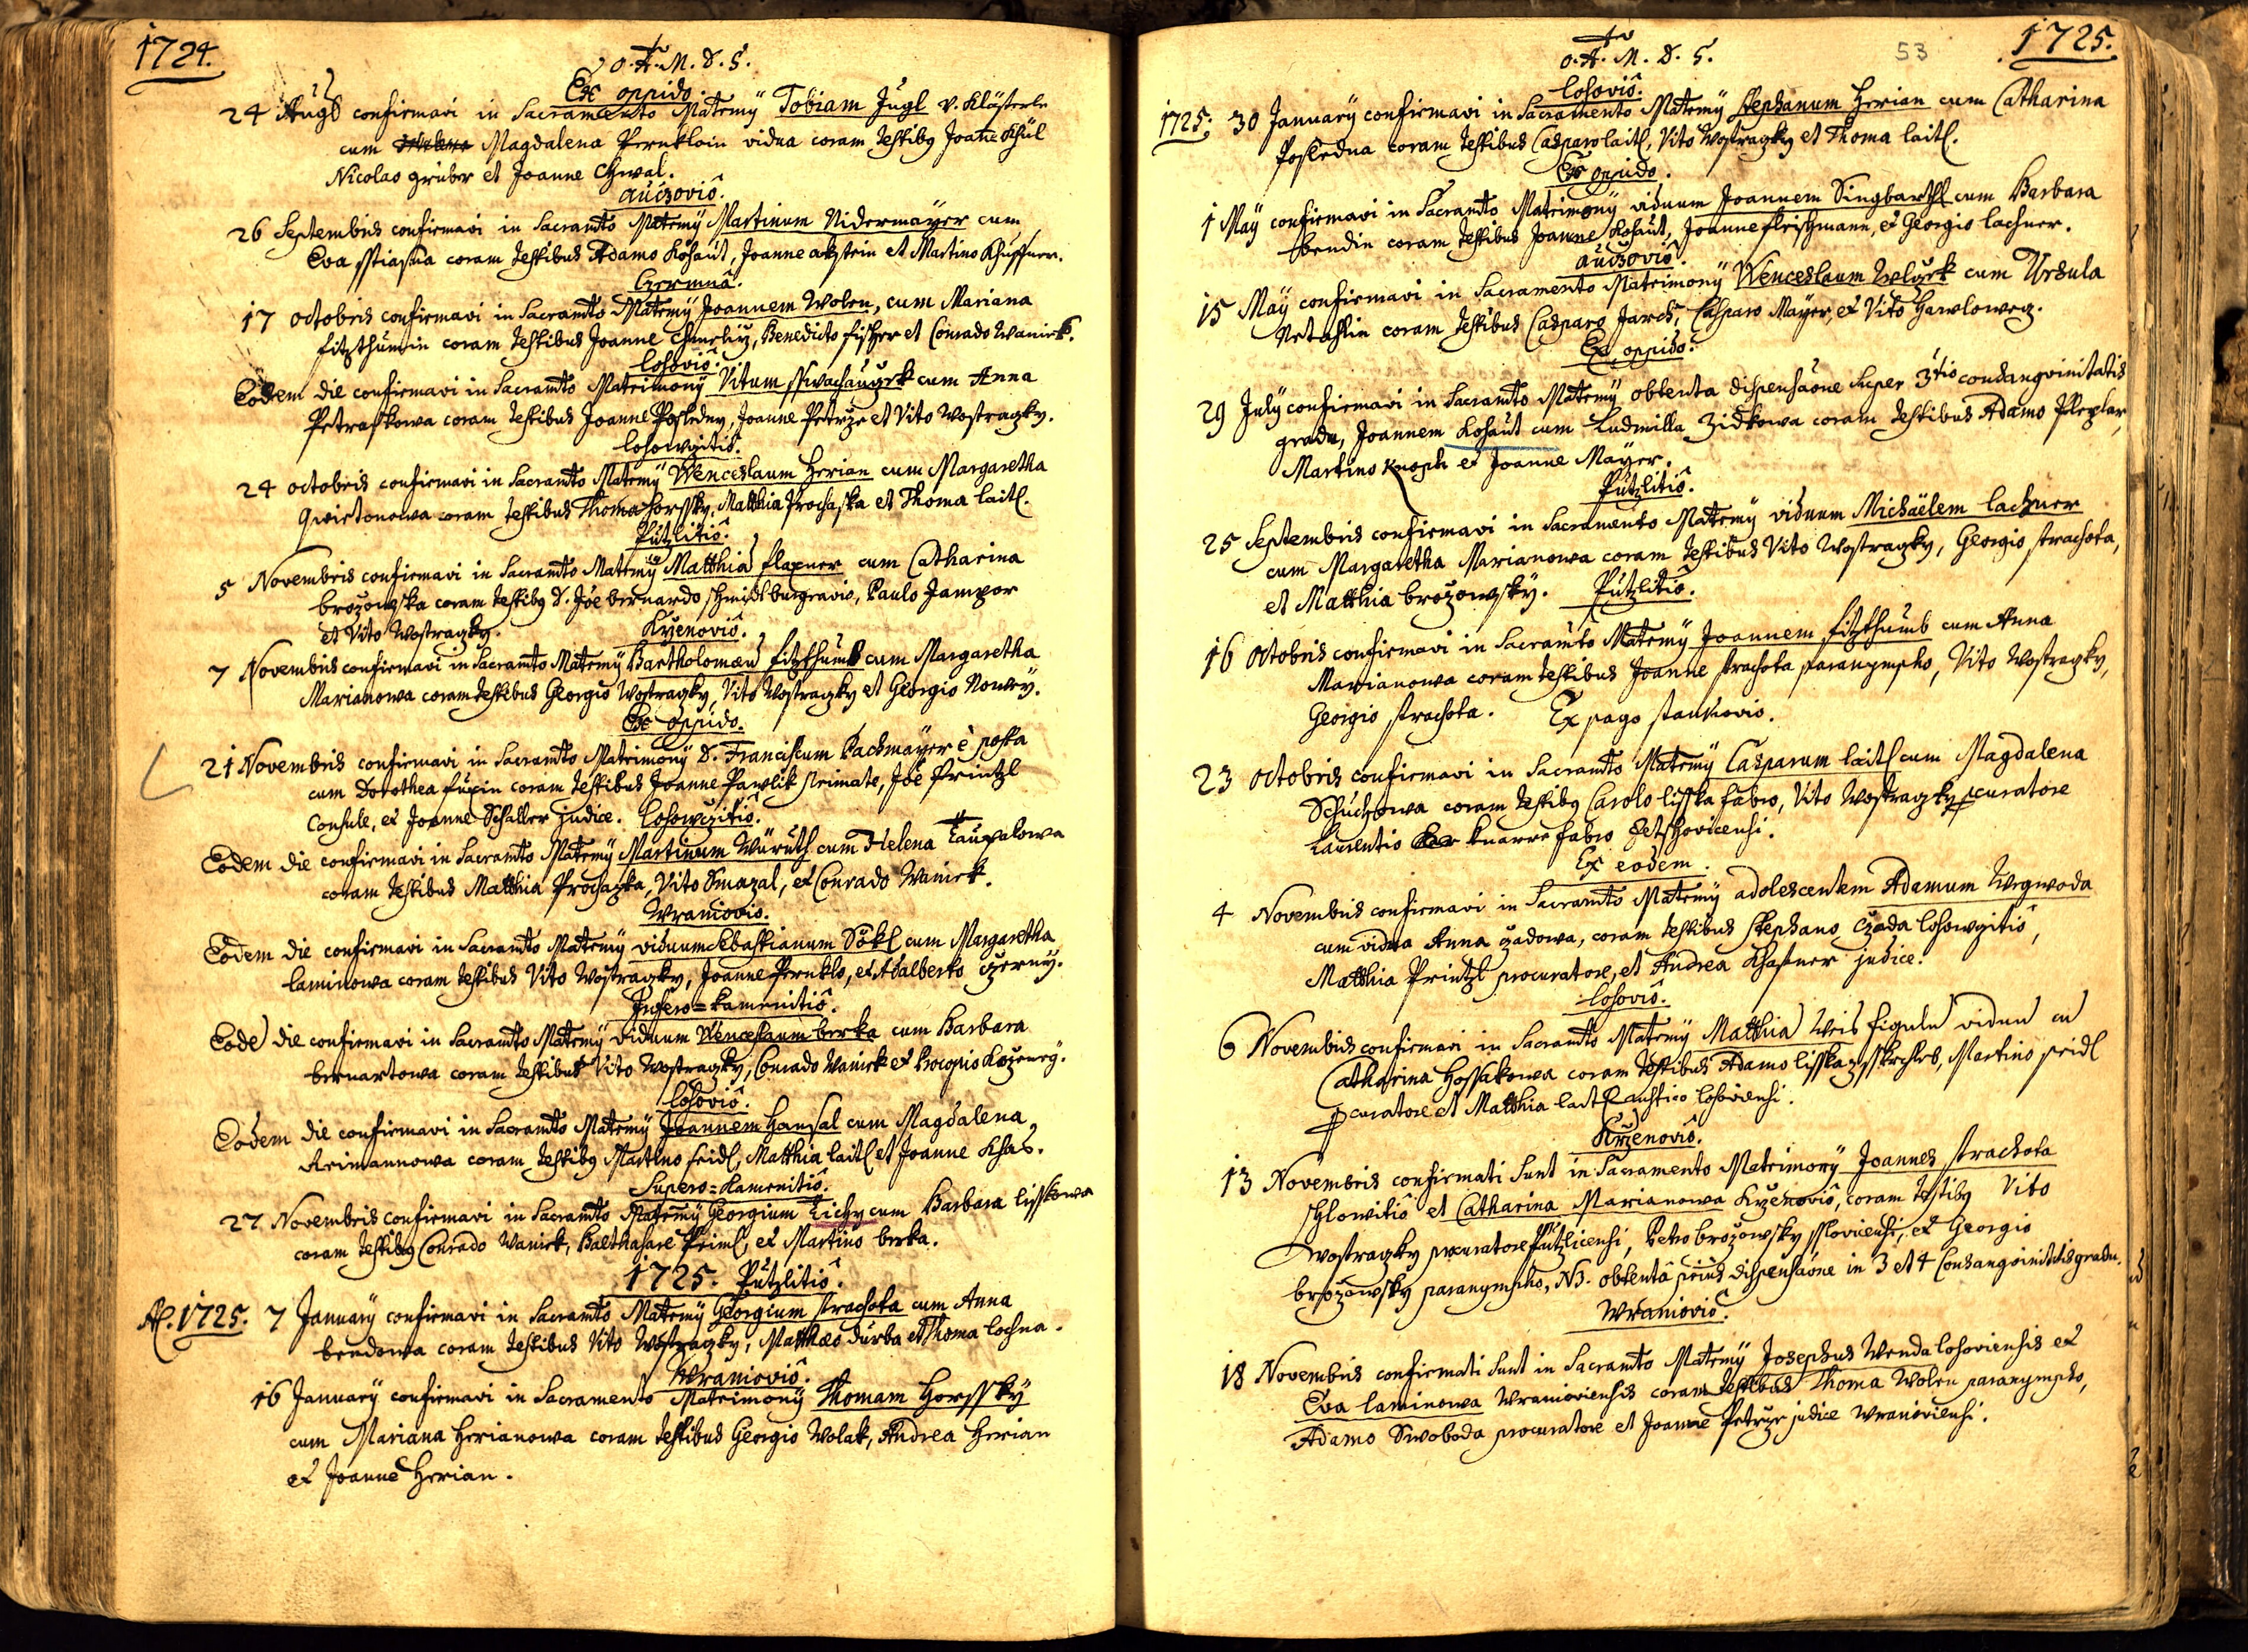 1724.
O. A. M. D. G.
Ex oppido.
24 Augs confirmavi in Sacramento Matrmÿ Tobiam Jugl v. Klösterle
cum Magdalena Pernkloin vidua coram testibg Joane Khül
Nicolao grüber et Joanne Chwal.
auczoviô.
26 Septembris confirmavi in Sacramto Matrmÿ Martinum Nidermayer cum
Eva sstiasna coram testibus Adamo Kohaut, Joanne akstein et Martino Khuffner.
Czermnâ.
17 octobris confirmavi in Sacramto Matrmÿ Joannem Wolen, cum Mariana
fitzthumin coram testibus Joanne Chmeliz, Benedicto fischer et Conrado Waniek.
lohoviô.
Eodem die confirmavi in Sacramto Matrimonÿ Vitum sswachaugek cum Anna
Petraskowa coram testibus Joanne Posledny, Joanne Petrze et Vito Wostragky.
lohowgitiô.
24 octobris confirmavi in Sacramto Matrmÿ Wenceslaum Herian cum Margaretha
Qwietonowa coram testibus Thoma Horssky, Matthia Prochaska et Thoma laitl.
Pützlitiô.
5 Novembris confirmavi in Sacramto Matrmÿ Matthia flaxner cum Catharina
brozowska coram testibg D. Joe bernardo schmidl burgravio, Paulo Jampor
et Vito Wostragky.
Kyenoviô.
7 Novembris confirmavi in Sacramto Matrmÿ Bartholomæu fitzthumb cum Margaretha
Marianowa coram testibus Georgio Wostragky, Vito Wostragky et Georgio Nowey.
Ex oppido.
21 Novembris confirmavi in Sacramto Matrimonÿ D. Franciscum Bachmayer è posta
cum Dorothea fuxin coram testibus Joanne Pawlik primate, Joe Printzl
Consule, et Joanne Schaller judice. lohowgitiô.
Eodem die confirmavi in Sacramto Matrmÿ Martinum Würuth cum Helena Taupalowa
coram testibus Matthia Prochazka, Vito Smazal, et Conrado Waniek.
Wranioviô.
Eodem die confirmavi in Sacramto Matrmÿ viduum Sebastianum Sökl cum Margaretha
laminowa coram testibus Vito Wostragky, Joanne Pernklo, et Adalberto czerny.
Infero=kamenitiô.
Eode die confirmavi in Sacramto Matrmÿ viduum Wenceslaum berka cum Barbara
bernartowa coram testibus Vito Wostragky, Conrado Waniek et Procopio Kozeneg.
lohoviô.
Eodem die confirmavi in Sacramto Matrmÿ Joannem Hansal cum Magdalena
Reimannowa coram testibg Martino seidl, Matthia laitl et Joanne Khas.
Supero=Kamenitiô.
27 Novembris confirmavi in Sacramto Matrmÿ Georgium Tichy cum Barbara lisskowa
coram testibg Conrado Waniek, Balthasare Priml, et Martino berka.
1725. Pützlitiô.
A. 1725. 7 Januarÿ confirmavi in Sacramto Matrmÿ Georgium strachota cum Anna
bendowa coram testibus Vito Wostragky, Matthæo durba et Thoma lochna.
Wranioviô.
16 Januarÿ confirmavi in Sacramento Matrimonÿ Thomam Horssky
cum Mariana Herianowa coram testibus Georgio Wolak, Andrea Herian
et Joanne Herian.
53
1725.
O. A. M. D. G.
lohoviô.
1725. 30 Januarÿ confirmavi in Sacramento Matrmÿ Stephanum Herian cum Catharina
Posledna coram testibus Casparo laitl, Vito Wostragky et Thoma laitl.
Ex oppido.
1 Maÿ confirmavi in Sacramto Matrimonÿ viduum Joannem Singbarthl cum Barbara
bendin coram testibus Joanne Kohaut, Joanne fleischmann, et Georgio lachner.
auczoviô.
15 Maÿ confirmavi in Sacramento Matrimonÿ Wenceslaum Wlczek cum Ursula
Netahlin coram testibus Casparo Jarch, Casparo Mayer, et Vito Hawloweg.
Ex oppido.
29 Julÿ confirmavi in Sacramto Matrmÿ obtenta dispensãone super 3tio consangvinitatis
gradu, Joannem Kohaut cum Ludmilla Zidkowa coram testibus Adamo Pleplar,
Martino Knoph et Joanne Mayer.
Pützlitiô.
25 Septembris confirmavi in Sacramento Matrmÿ viduum Michäelem lachner
cum Margaretha Marianowa coram testibus Vito Wostragky, Georgio strachota,
et Matthia brozowsky. Pützlitiô.
16 octobris confirmavi in Sacramto Matrmÿ Joannem fitzthumb cum Anna
Marianowa coram testibus Joanne strachota paranympho, Vito Wostragky,
Georgio strachota. Ex pago stankovio.
23 octobris confirmavi in Sacramto Matrmÿ Casparum laitl cum Magdalena
Schuchowa coram testibg Carolo lisska fabro, Vito Wostragky pcuratore
Laurentio knarre fabro Zetschovicensi.
Ex eodem.
4 Novembris confirmavi in Sacramto Matrmÿ adolescentem Adamum Wegwoda
cum vidua Anna czadowa, coram testibus stephano czada lohowgitiô,
Matthia Printzl procuratore, et Andrea Khastner judice.
lohoviô.
6 Novembris confirmavi in Sacramto Matrmÿ Matthia Weis figulu viduu cu
Catharina Hossakowa coram testibus Adamo lisska, Martino seidl
pcuratore et Matthia laitl rustico lohoviensi.
Krzenoviô.
13 Novembris confirmati sunt in Sacramento Matrimonÿ Joannes strachota
schlowitiô et Catharina Marianowa Kyenoviô, coram testibg Vito
Wostragky procuratore Pützlicensi, Petro brozowsky sslovicensi, et Georgio
brozowsky paranympho, NB. obtentâ prius dispensãone in 3 et 4 Consangvinitatis gradu.
Wranioviô.
18 Novembris confirmati sunt in Sacramto Matrmÿ Josephus Wenda lohoviensis et
Eva laminowa Wranioviensis coram testibus Thoma Wolen paranympho,
Adamo Swoboda procuratore et Joanne Petrze judice Wranioviensi.